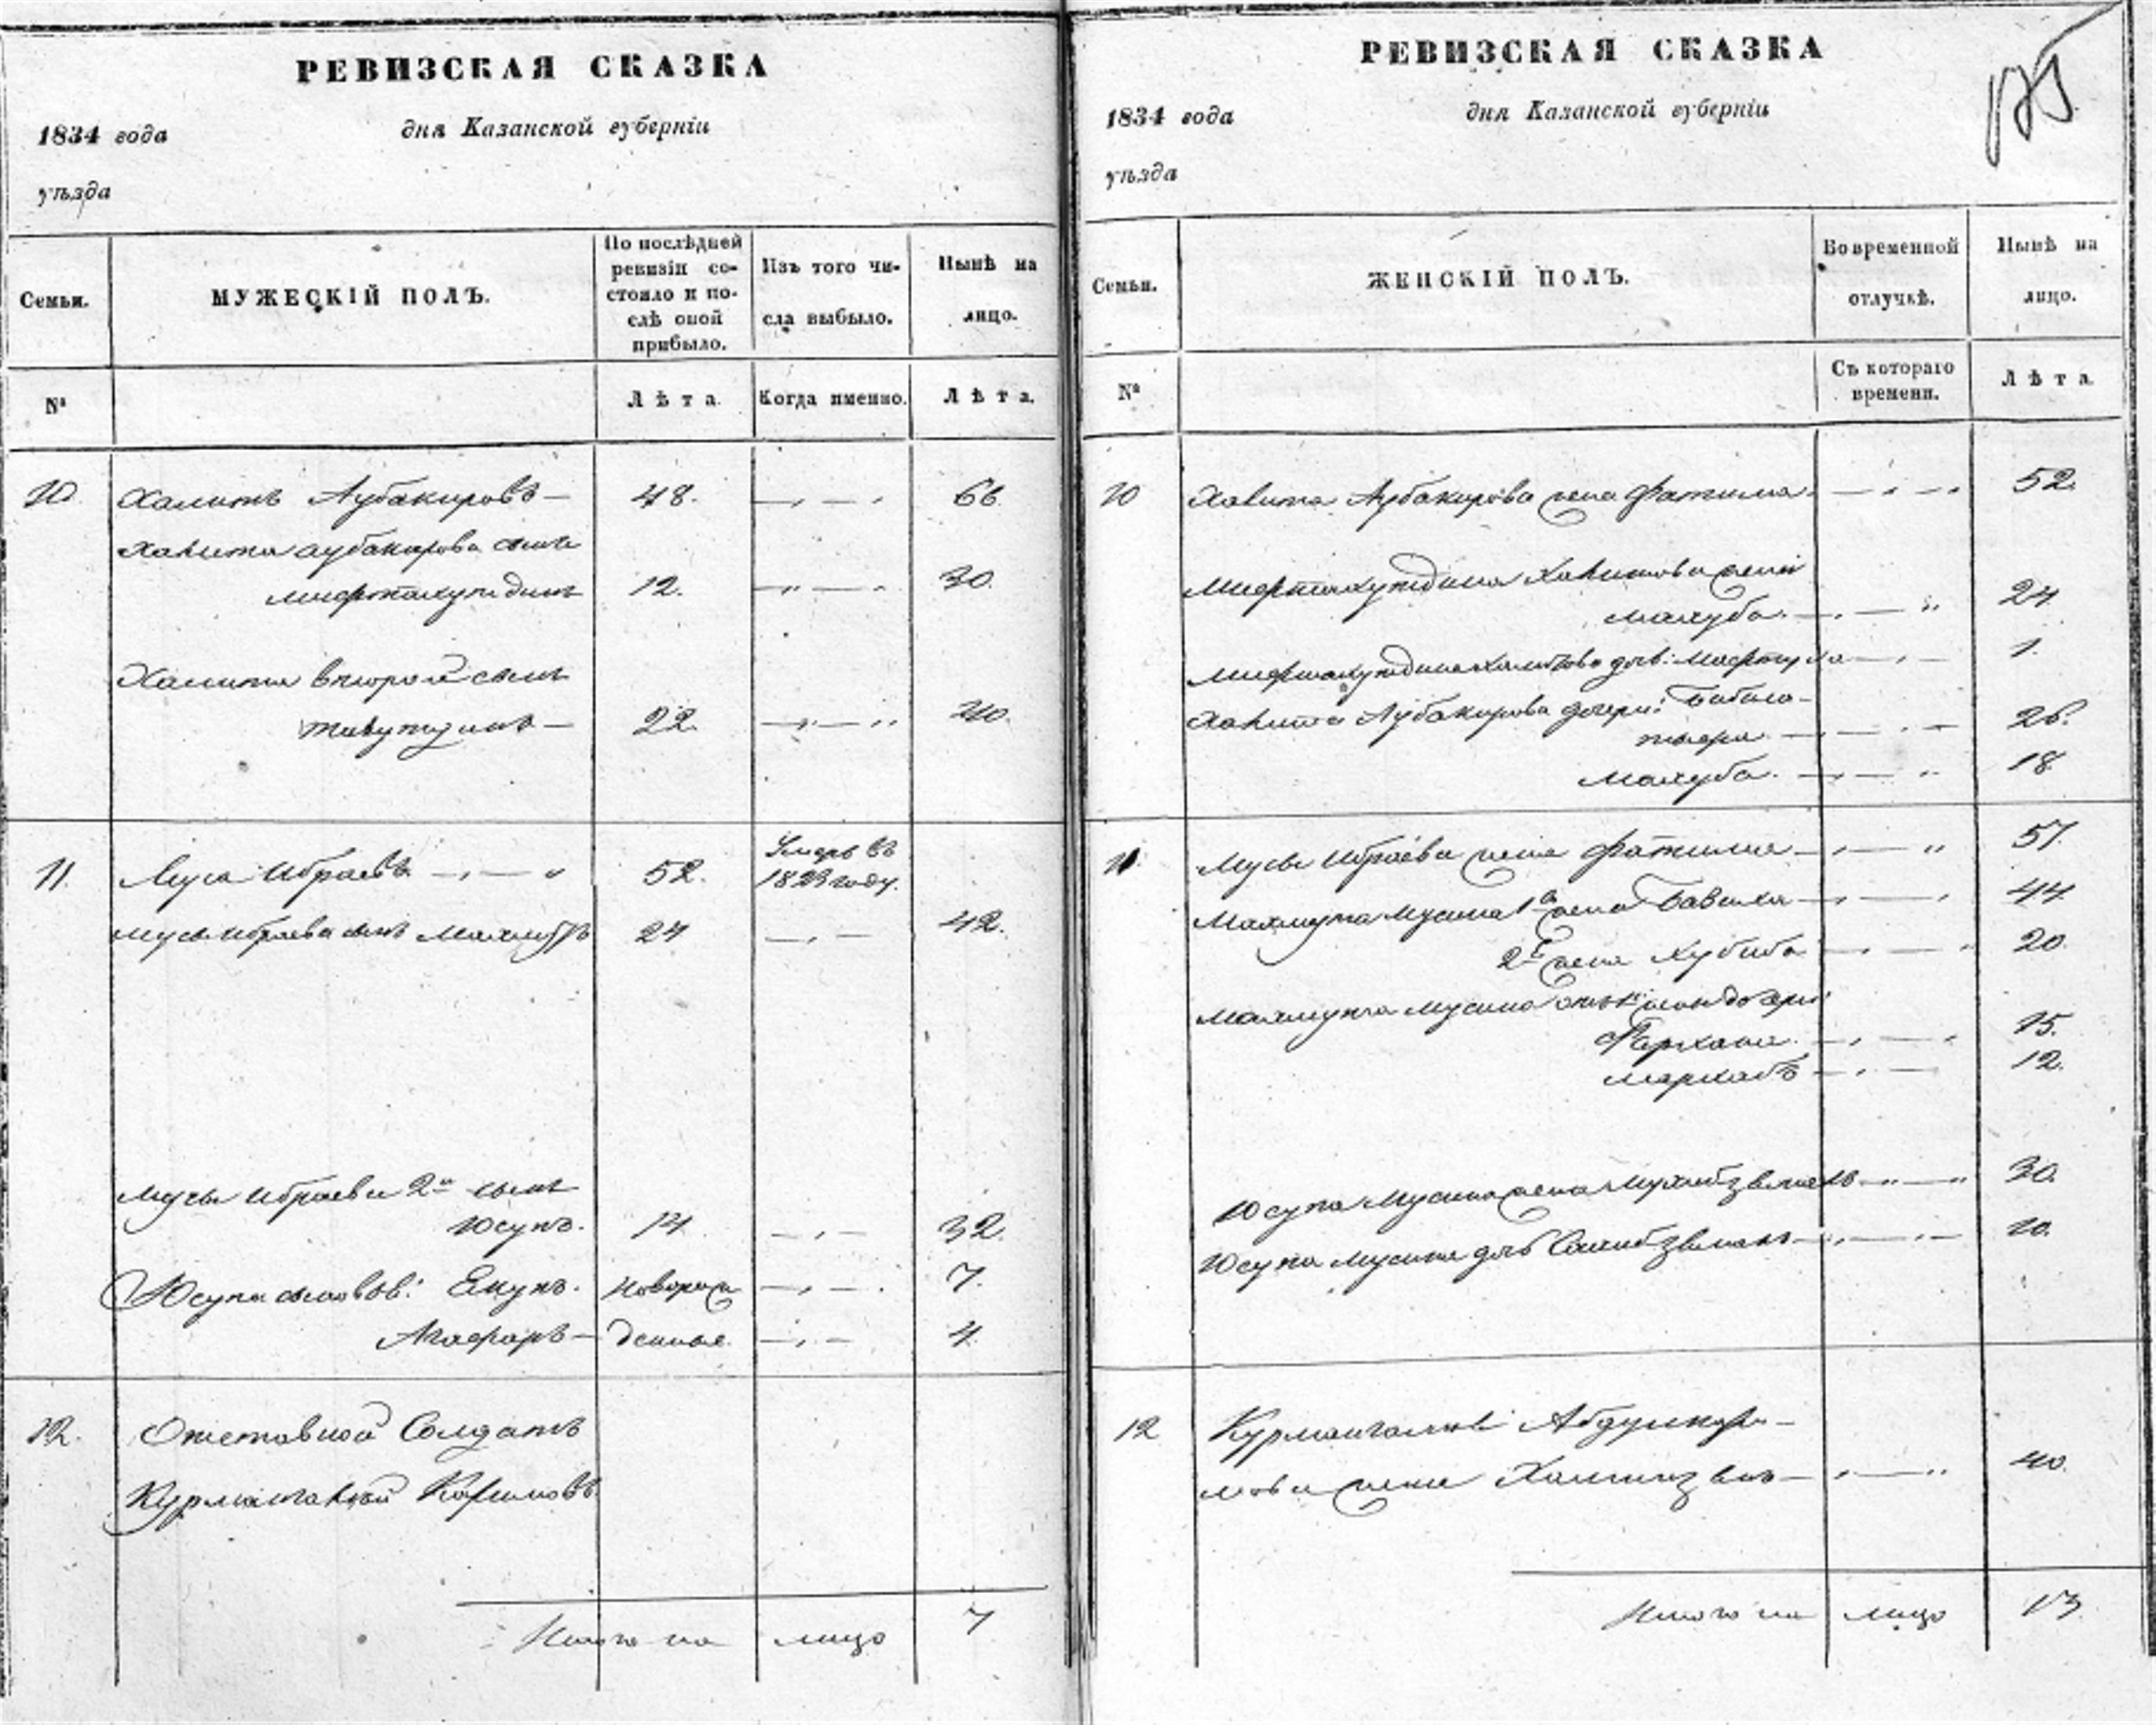 РЕВИЗСКАЯ СКАЗКА
1834 года дня Казанской губерніи
уѣзда
Семьи.
МУЖЕСКІЙ ПОЛЪ.
По послѣдней ревизіи со-
стояло и по-
слѣ оной
прибыло.
Изъ того чи-
сла выбыло.
Нынѣ на
лицо.
№
Лѣта.
Когда именно.
Лѣта.
10 Халитъ Аубакировъ — 48. 66
Халита Аубакирова сынъ
Мифтахутдинъ 12. 30.
Халита второй сынъ
22. 40.
11. Муса Ибраевъ 52. Умеръ въ
1823 году.
Мусы Ибраева сынъ Махмутъ 24 42.
Мусы Ибраева 2й сынъ
Юсупъ. 14 32
Юсупа сыновья: Екупъ. новорож 7.
Агафаръ — денные. 4.
12. Отставной Солдатъ
Курмангалей Каримовъ
Итого на лицо 7
РЕВИЗСКАЯ СКАЗКА
125
1834 года дня Казанской губерніи
уѣзда
Семьи.
ЖЕНСКІЙ ПОЛЪ.
Во временной
отлучкѣ.
Нынѣ на
лицо.
№
Съ котораго
времени.
Лѣта.
10 Халита Аубакирова жена Фатима. 52.
Мифтахутдина Халитова жена
Махуба. 24
Мифтахутдина Халитова дочь: 1.
Халита Аубакирова дочери: 
26.
Махуба. 18
11 Мусы Ибраева жена Фатима 57.
Махмута Мусина 1я жена 44
2я жена Хубиба 20
Махмута Мусина отъ 1й жены дочери:
15.
12.
Юсупа Мусина жена 30.
Юсупа Мусина дочь 10.
12 Курмангалея Абдулкари-
мова жена 40.
Итого на лицо 13